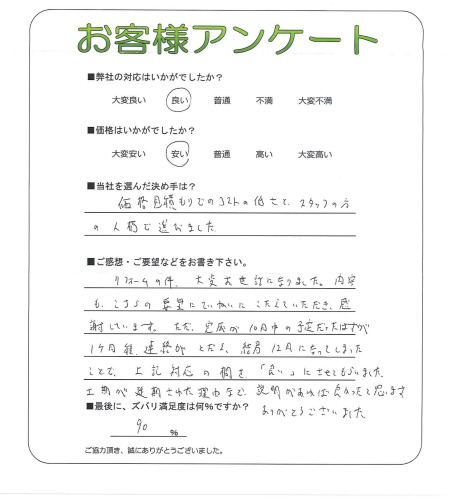 お客様アンケート
■弊社の対応はいかがでしたか?
大変良い 良い 普通 不満 大変不満
■価格はいかがでしたか?
大変安い 安い 普通 高い 大変高い
■当社を選んだ決め手は?
価格見積もりでのコストの低さと、スタッフの方
の人柄で選びました
■ご感想・ご要望などをお書き下さい。
リフォームの件、大変お世話になりました。内容
も、こちらの要望にていねいにこたえていただき、感
謝しています。ただ、完成が10月中の予定だったはずが
1ヶ月程連絡が とだえ、結局12月になってしまった
ことで、上記対応の欄を「良い」にさせてもらいました。
工期が延期された理由など、説明があれば良かったと思います
ありがとうございました
■最後に、ズバリ満足度は何%ですか?
90 %
ご協力頂き、誠にありがとうございました。